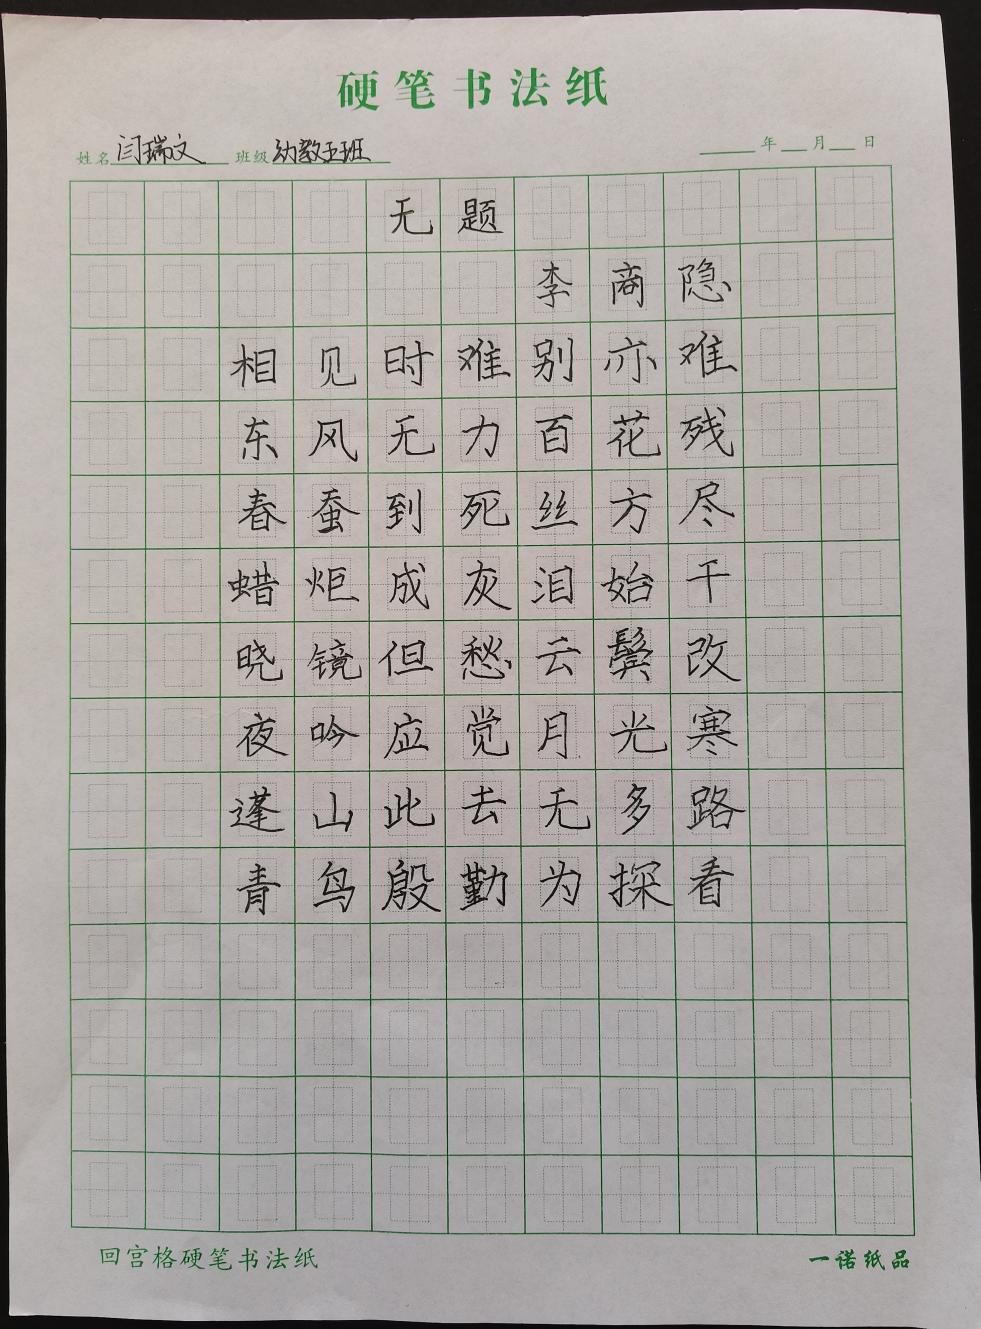 硬笔书法纸
姓名 闫瑞文 班级 幼教五班 年 月 日
无题
李商隐
相见时难别亦难
东风无力百花残
春蚕到死丝方尽
蜡炬成灰泪始干
晓镜但愁云鬓改
夜吟应觉月光寒
蓬山此去无多路
青鸟殷勤为探看
回宫格硬笔书法纸 一诺纸品